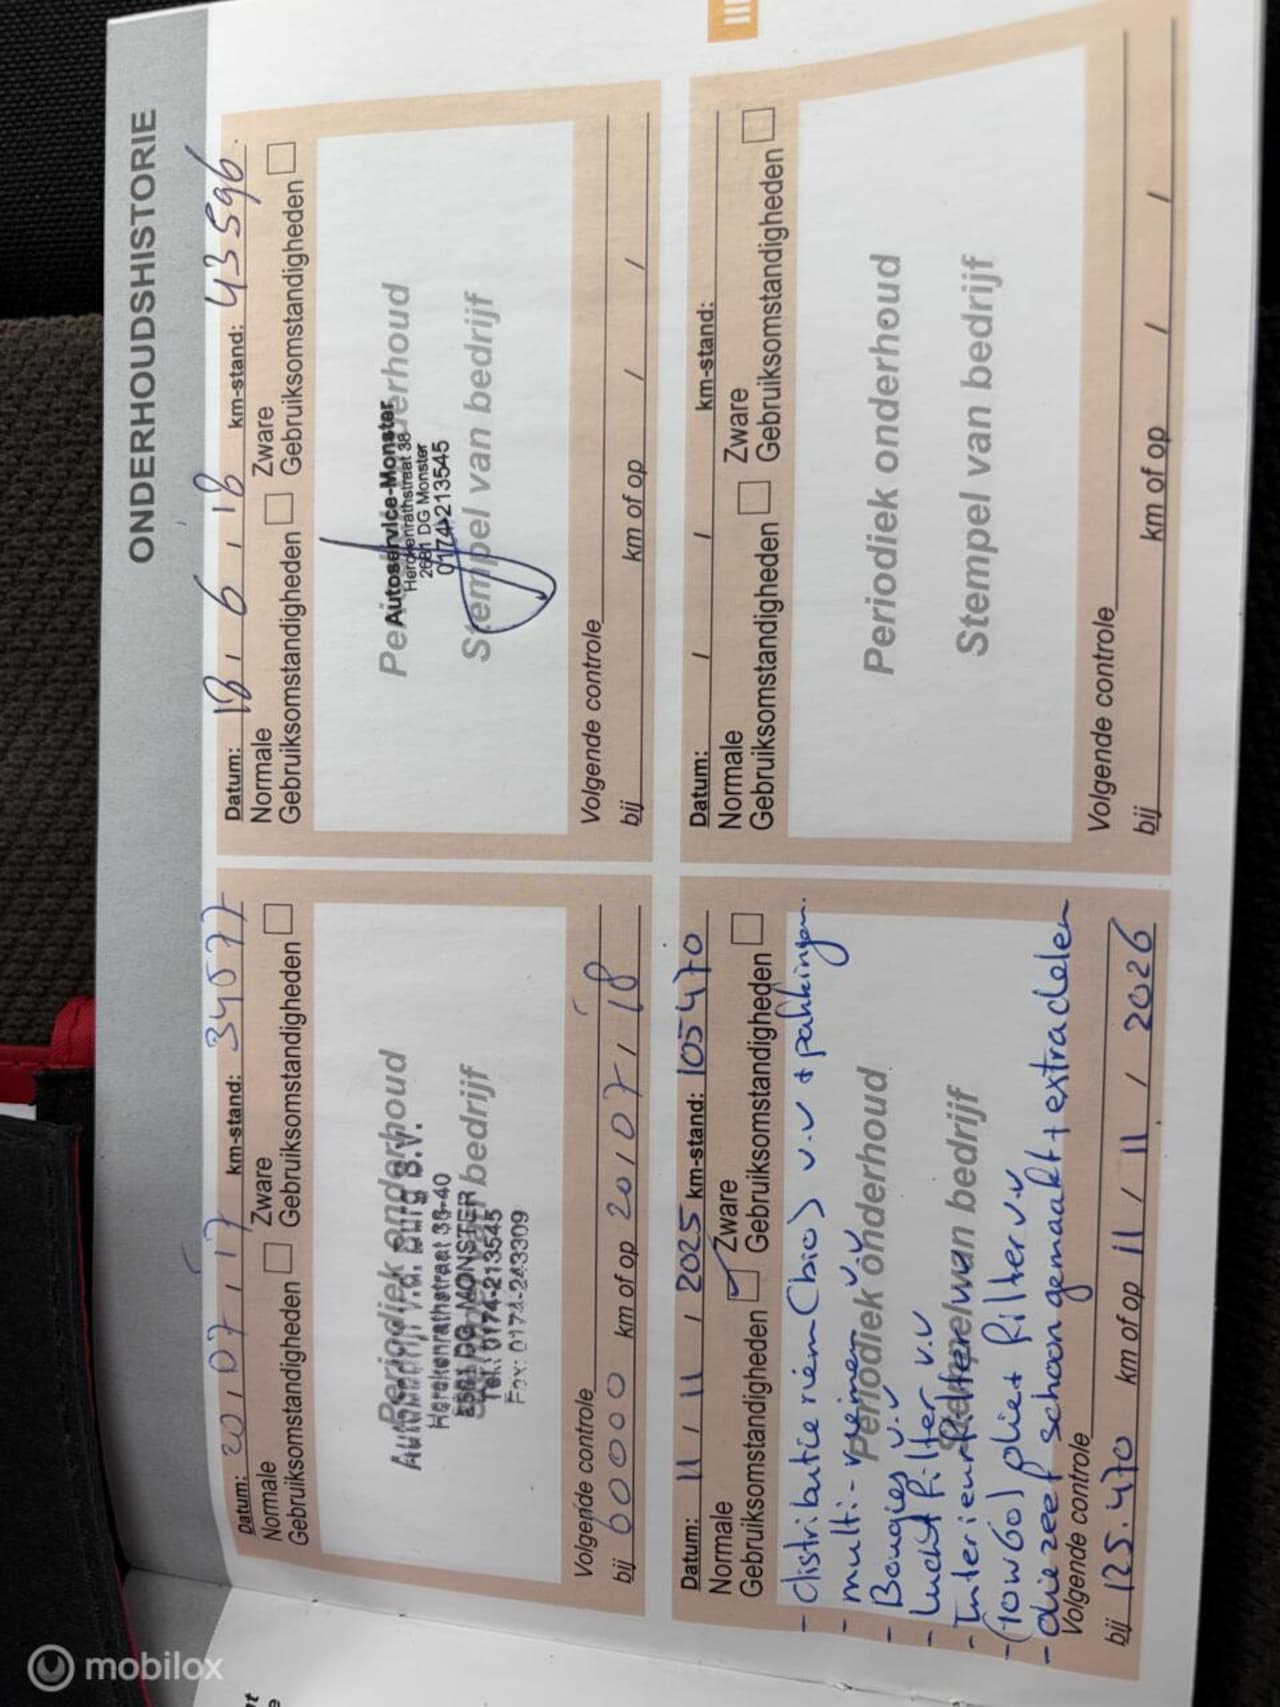 ONDERHOUDSHISTORIE
Datum: 20 / 07 / 17 km-stand: 34577
Normale
Gebruiksomstandigheden
Zware
Gebruiksomstandigheden
Periodiek onderhoud
Stempel van bedrijf
Herckenrathstraat 38-40
2681 DG MONSTER
Tel.: 0174-213545
Fax: 0174-243309
Volgende controle
bij 60000 km of op 20 / 07 / 18
Datum: 18 / 6 / 18 km-stand: 43596.
Normale
Gebruiksomstandigheden
Zware
Gebruiksomstandigheden
Periodiek onderhoud
Stempel van bedrijf
Autoservice-Monster
Herckenrathstraat 38
2681 DG Monster
0174-213545
Volgende controle
bij km of op / /
Datum: 11 / 11 / 2025 km-stand: 105470
Normale
Gebruiksomstandigheden
Zware
Gebruiksomstandigheden
Periodiek onderhoud
Stempel van bedrijf
- distributie riem (bio) v.v + pakkingen.
- multi-riemen v.v
- Bougies v.v
- lucht filter v.v
- Interieur filter
- (10w60) olie + filter v.v
- olie zeef schoongemaakt + extra delen
Volgende controle
bij 125.470 km of op 11 / 11 / 2026
Datum: / / km-stand:
Normale
Gebruiksomstandigheden
Zware
Gebruiksomstandigheden
Periodiek onderhoud
Stempel van bedrijf
Volgende controle
bij km of op / /
III
mobilox